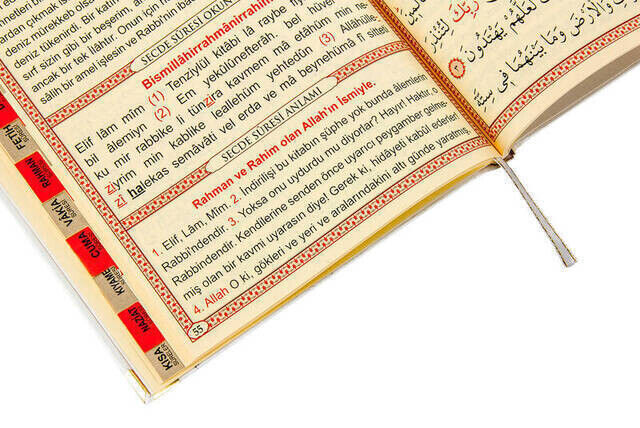 deniz mürekkep olsa
deniz tükenirdi. Bir katı
sırf sizin gibi bir beşerim, an
ancak bir tek ilâhtır. Onun için h
salih bir amel işlesin ve Rabbi'nin ibad
SECDE SÛRESİ OKUN
Bismillâhirrahmânirrahîm
Elif lâm mîm (1) Tenzîyül kitâbi lâ raybe fî
bil âlemiyn (2) Em yekûlûnefterâh. bel hü
ku mir rabbike li tünzira kavmem mâ etâhüm min ne
ziyrim min kablike leallehüm yehtedûn (3) Allâhülle
zî halekas semâvâti vel erda ve mâ beynehümâ fî sitteti
SECDE SÛRESİ ANLAMI
Rahman ve Rahim olan Allah'ın ismiyle.
1. Elif, Lâm, Mîm. 2. İndirilişi bu kitabın şüphe yok bunda âlemlerin
Rabbi'ndendir. 3. Yoksa onu uydurdu mu diyorlar? Hayır! Haktır, o
Rabbindendir. Kendilerine senden önce uyarıcı peygamber gelme-
miş olan bir kavmi uyarasın diye! Gerek ki, hidâyeti kabul ederler!
4. Allah O ki, gökleri ve yeri ve aralarındakini altı günde yaratmış,
55
FETİH
RAHMAN
VÂKIA
CUMA
KIYAME
NAZİAT
KISA
SÛRELER
رَبِّكَ لِتُنْذِرَ
لَعَلَّهُمْ يَهْتَدُونَ
وَالْأَرْضَ وَمَا بَيْنَهُمَا فِي سِتَّةِ